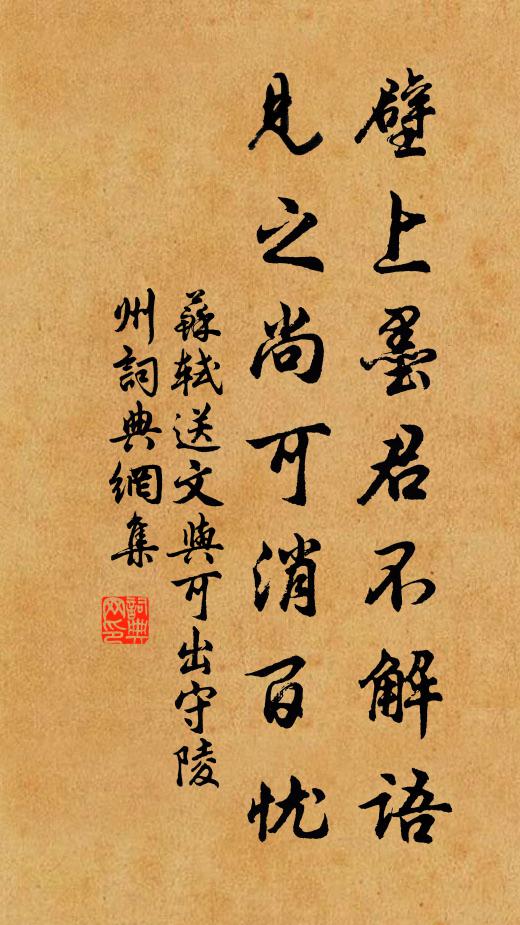 壁上墨君不解語
見之尚可消百忧
蘇軾送文與可出守陵
州詞典網集
詞典
网印